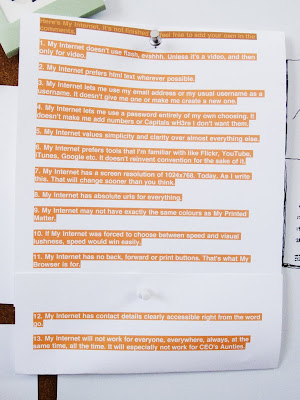 Here's My Internet, it's not finished feel free to add your own in the
comments.
1. My Internet doesn't use flash, evahhh. Unless it's a video, and then
only for video.
2. My Internet prefers html text wherever possible.
3. My Internet lets me use my email address or my usual username as a
username. It doesn't give me one or make me create a new one.
4. My Internet lets me use a password entirely of my own choosing. It
doesn't make add numbers or Capitals wHOre I don't want them.
5. My Internet values simplicity and clarity over almost everything else.
6. My Internet prefers tools that I'm familiar with like Flickr, YouTube,
iTunes, Google etc. It doesn't reinvent convention for the sake of it.
7. My Internet has a screen resolution of 1024x768. Today. As I write
this. That will change sooner than you think.
8. My Internet has absolute urls for everything.
9. My Internet may not have exactly the same colours as My Printed
Matter.
10. If My Internet was forced to choose between speed and visual
lushness, speed would win easily.
11. My Internet has no back, forward or print buttons. That's what My
Browser is for.
12. My Internet has contact details clearly accessible right from the word
go.
13. My Internet will not work for everyone, everywhere, always, at the
same time, all the time. It will especially not work for CEO's Aunties.